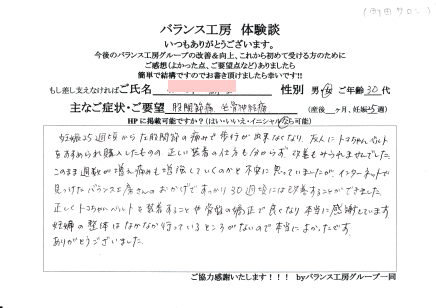 (町田サロン)
バランス工房 体験談
いつもありがとうございます。
今後のバランス工房グループの改善&向上、これから初めて受ける方のために
ご感想(よかった点、ご要望点など)ありましたら
簡単で結構ですのでお書き頂けましたら幸いです!!
もし差し支えなければご氏名 性別 男・女 ご年齢 30 代
主なご症状・ご要望 股関節痛 坐骨神経痛 (産後 ヶ月、妊娠 5週)
HPに掲載可能ですか?(はい・いいえ・イニシャルなら可能)
妊娠25週頃から左股関節の痛みで歩行が出来なくなり、友人にトコちゃんベルト
をすすめられ購入したものの正しい装着の仕方も分からず改善もみられませんでした。
このまま週数が増え痛みも増強していくのかと不安に思っていましたが、インターネットで
見つけたバランス工房さんのおかげですっかり30週頃には改善することができました。
正しくトコちゃんベルトを装着することや骨盤の矯正で良くなり本当に感謝しています。
妊婦の整体はなかなか行っているところがないので本当によかったです。
ありがとうございました。
ご協力感謝いたします!!! byバランス工房グループ一同